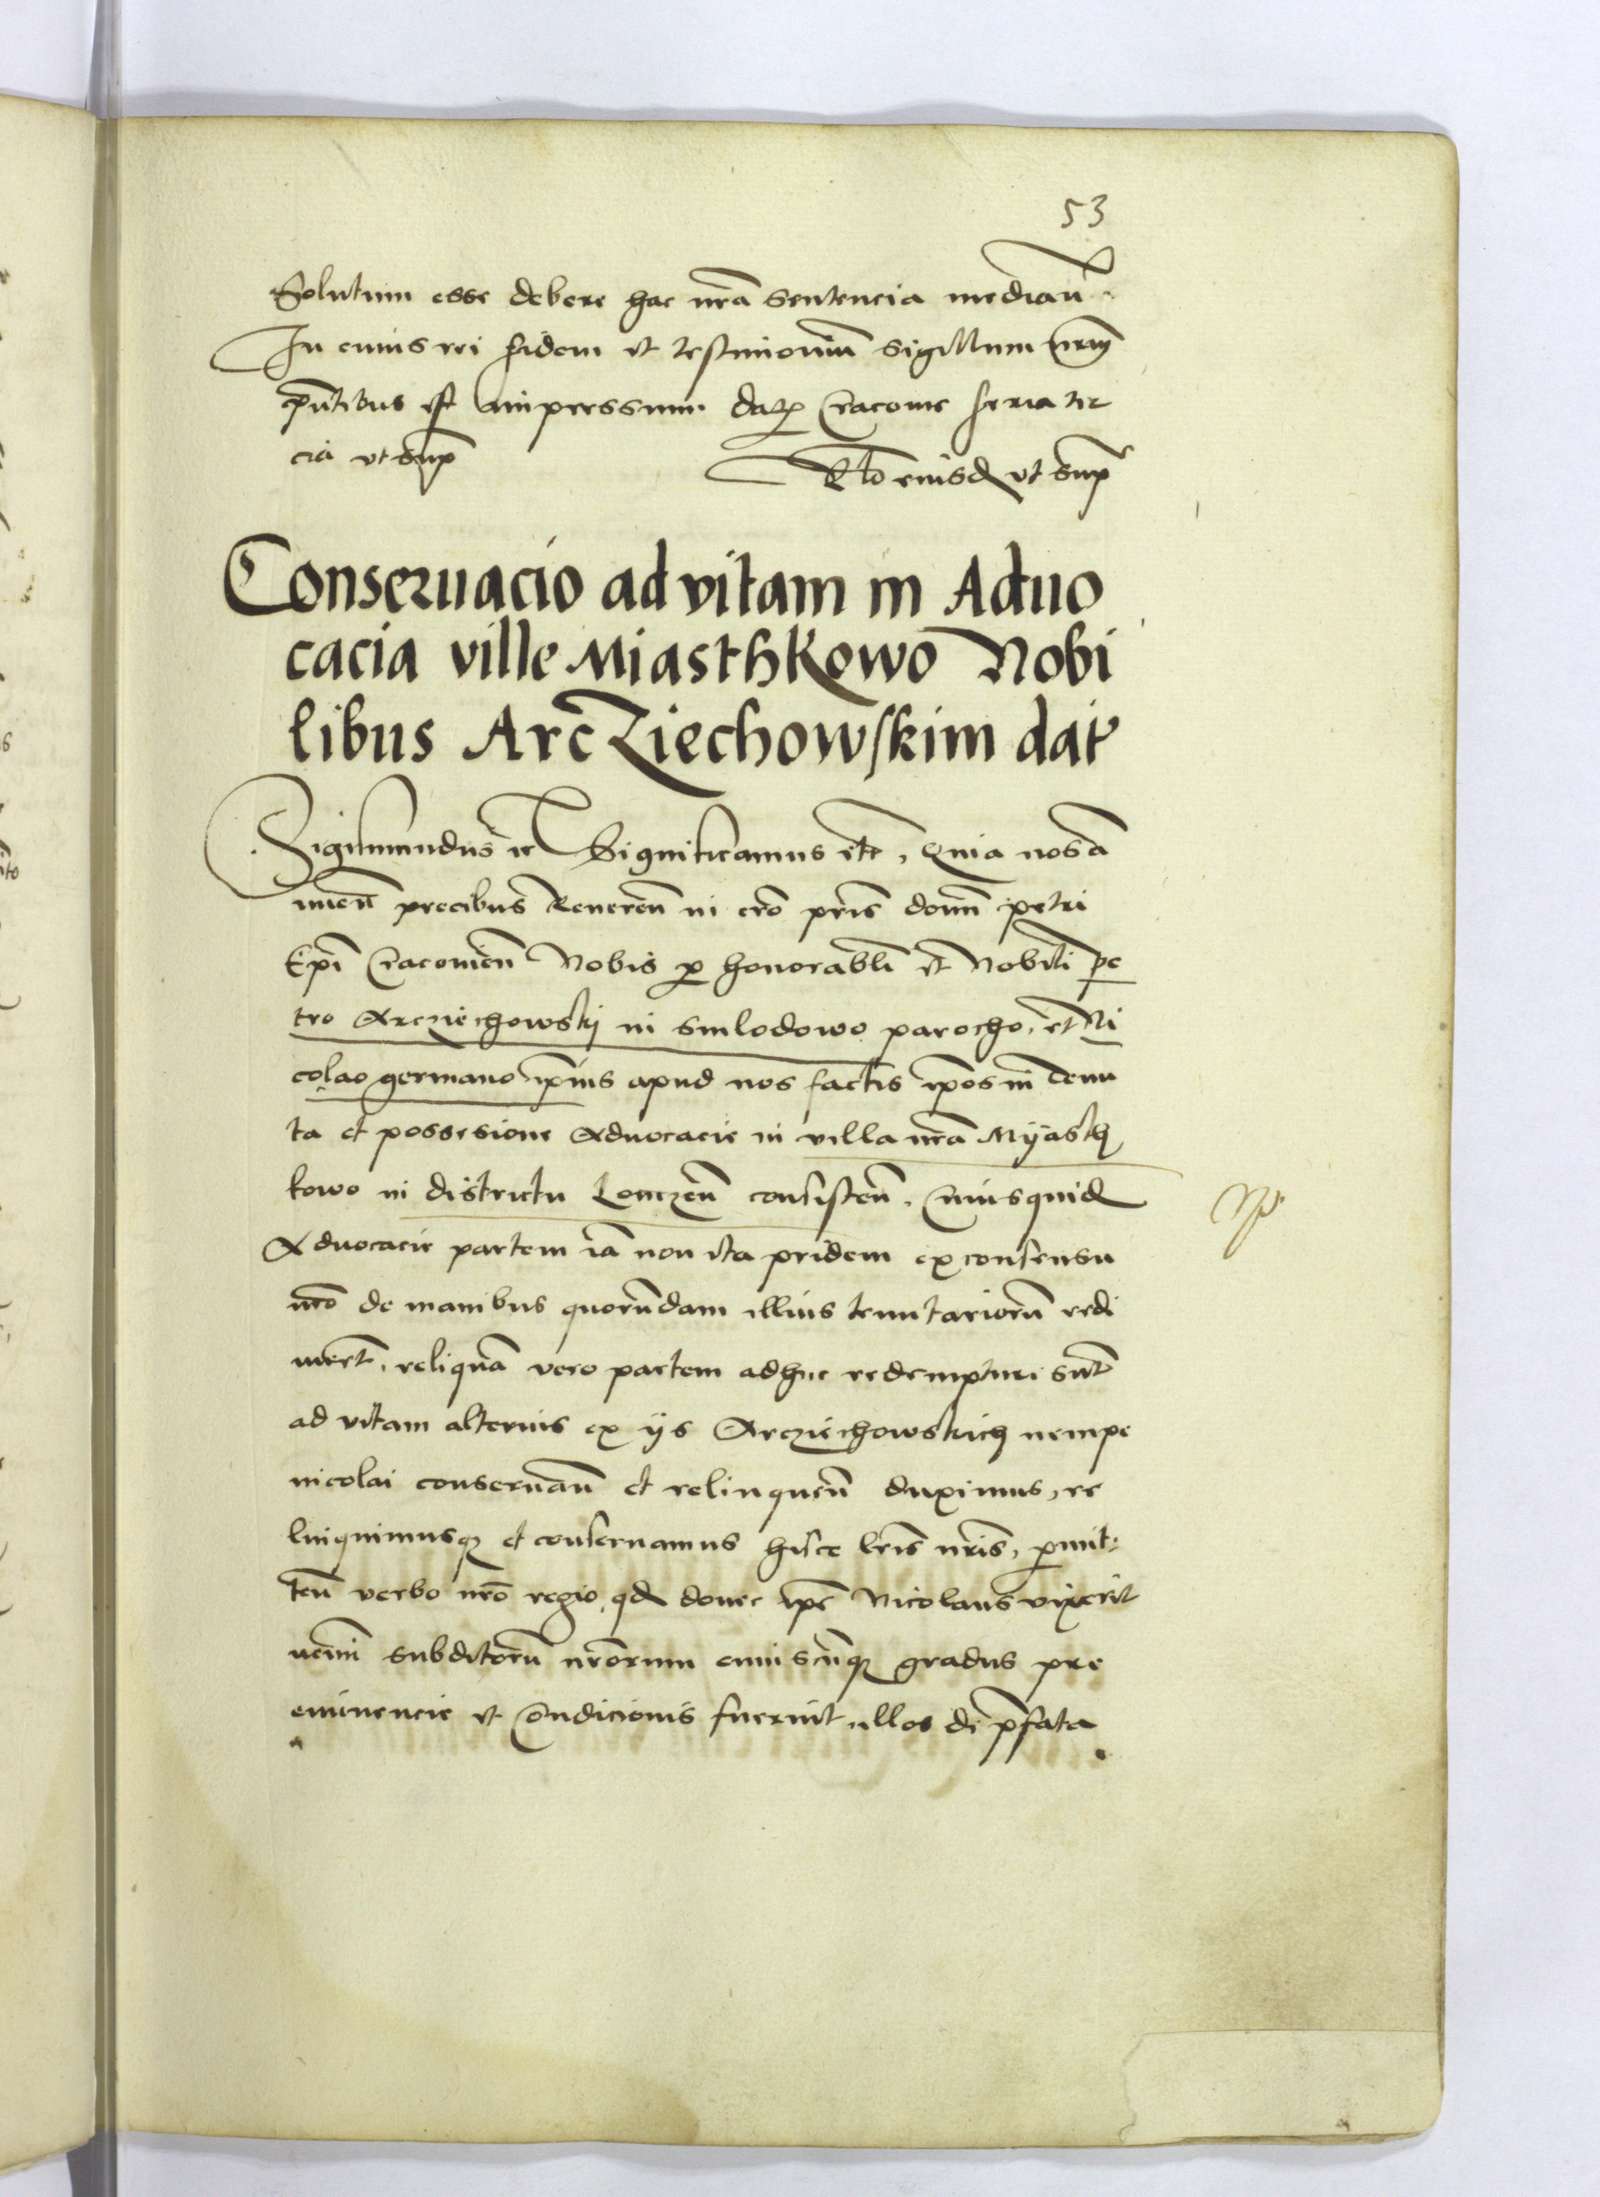 53
Solutum esse debere hac nrã sentencia mediañ.
In cuius rei fidem et testimoniũ sigillum nrm̃
p̃ntibus est impressum. datũ Cracovie feria ter
cia ut sup̃
R̃lo eiusdẽ ut sup̃
Conseruacio ad vitam in Aduo
cacia ville Miasthkowo Nobi
libus ArcZiechowskim dat̃
Sigismundus ẽc Significamus etc̃, Quia nos ã
nueñ precibus Reuereñ in cr̃o pr̃is domñ petri
Ep̃i Cracovieñ Nobis p honorabl̃i et Nobili pe
tro Arcziechowskj in smlodowo parocho, et Ni
colao germano ip̃ius apud nos factis ip̃os in tenu
ta et possesione Aduocacie in villa nrã Myasth
kowo in districtu Lomzeñ consisteñ. Cuiusquidẽ
Aduocacie partem iã non ita pridem ex consensu
nrõ de manibus quorũdam illius tenutariorũ redi
merũt, reliquã vero partem adhuc redempturi sũt
ad vitam alterius ex ijs Arcziechowskich nempe
nicolai conseruañ et relinqueñ duximus, re
linquimusqꝫ et conseruamus hisce lr̃is nr̃is, p̱mit:
teñ verbo nrõ regio, qd̃ donec ip̃e Nicolaus vixerit
nemĩ subditorũ nr̃orum cuiuscũqꝫ gradus pre
eminencie et Condicionis fuerint illos de p̃fata